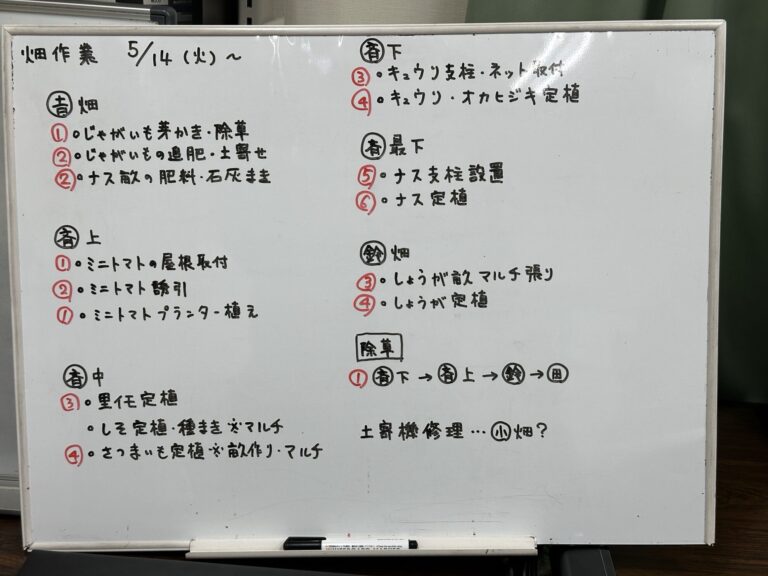 畑作業 5/14(火)～
㊎畑
①・じゃがいも芽かき・除草
②・じゃがいもの追肥・土寄せ
②・ナス畝の肥料・石灰まき
斉上
①・ミニトマトの屋根取付
②・ミニトマト誘引
①・ミニトマトプランター植え
斉中
③・里イモ定植
・しそ定植・種まき※マルチ
④・さつまいも定植※畝作り・マルチ
斉下
③・キュウリ支柱・ネット取付
④・キュウリ・オカヒジキ定植
斉最下
⑤・ナス支柱設置
⑥・ナス定植
鈴畑
③・しょうが畝マルチ張り
④・しょうが定植
除草
①斉下→斉上→鈴→田
土寄機修理…小畑?